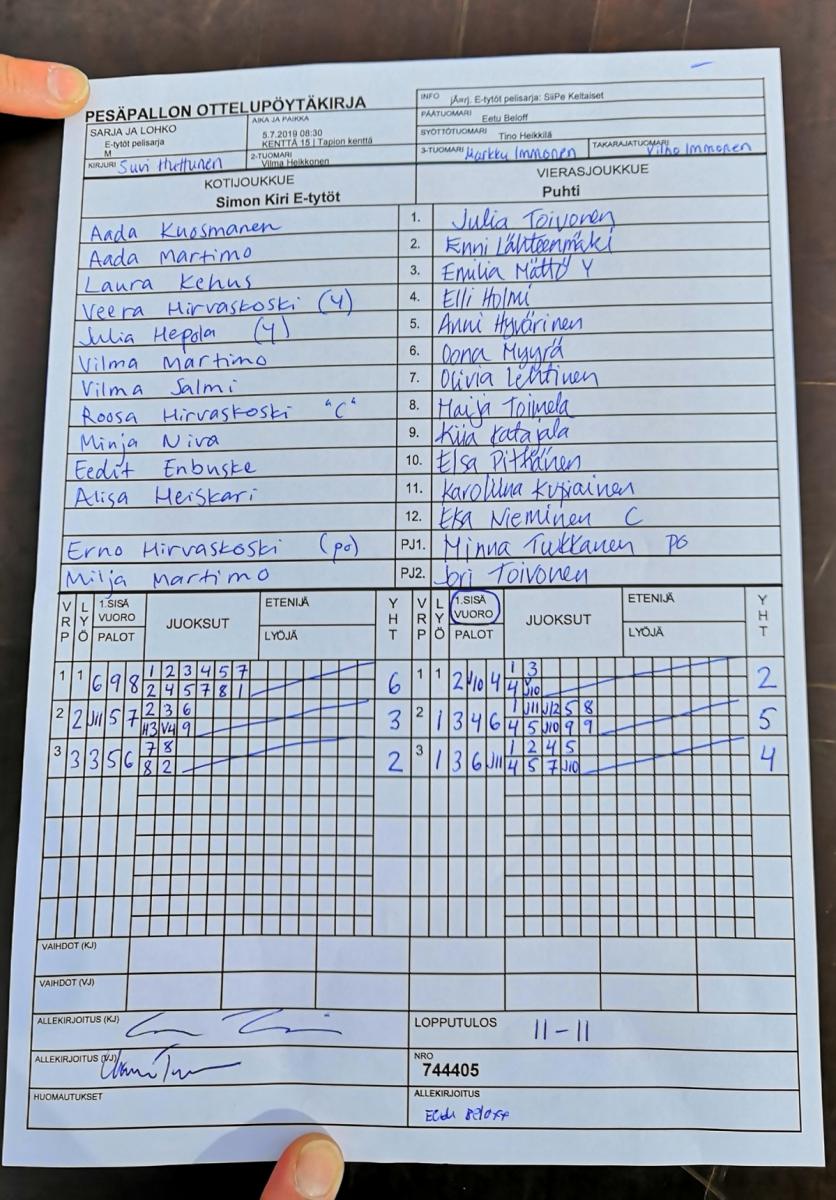 PESÄPALLON OTTELUPÖYTÄKIRJA
INFO jÄarj. E-tytöt pelisarja: SiiPe Keltaiset
SARJA JA LOHKO
E-tytöt pelisarja
M
AIKA JA PAIKKA
5.7.2019 08:30
KENTTÄ 15 | Tapion kenttä
PÄÄTUOMARI Eetu Beloff
SYÖTTÖTUOMARI Tino Heikkilä
KIRJURI Suvi Huttunen
2-TUOMARI
Vilma Heikkonen
3-TUOMARI Markku Immonen
TAKARAJATUOMARI Vilho Immonen
KOTIJOUKKUE
Simon Kiri E-tytöt
VIERASJOUKKUE
Puhti
Aada Kuosmanen 1. Julia Toivonen
Aada Martimo 2. Enni Lähteenmäki
Laura Kehus 3. Emilia Mättö Y
Veera Hirvaskoski (Y) 4. Elli Holmi
Julia Hepola (Y) 5. Anni Hyvärinen
Vilma Martimo 6. Oona Myyrä
Vilma Salmi 7. Olivia Lehtinen
Roosa Hirvaskoski "C" 8. Maija Toimela
Minja Niva 9. Kiia Katajala
Eedit Enbuske 10. Elsa Pitkänen
Alisa Heiskari 11. Karoliina Kupiainen
12. Eka Nieminen C
Erno Hirvaskoski (po) PJ1. Minna Tukkanen PO
Milja Martimo PJ2. Jori Toivonen
VRP LYÖ 1.SISÄ VUORO PALOT JUOKSUT ETENIJÄ LYÖJÄ YHT VRP LYÖ 1.SISÄ VUORO PALOT JUOKSUT ETENIJÄ LYÖJÄ YHT
1 1 6 9 8 1 2 3 4 5 7 6 1 1 2 J10 4 1 3 2
2 4 5 7 8 1 4 J10
2 2 J11 5 7 2 3 6 3 2 1 3 4 6 1 J11 J12 5 8 5
H3 V4 9 4 5 J10 9 9
3 3 3 5 6 7 8 2 3 1 3 6 J11 1 2 4 5 4
8 2 4 5 7 J10
VAIHDOT (KJ)
VAIHDOT (VJ)
ALLEKIRJOITUS (KJ)
LOPPUTULOS 11-11
ALLEKIRJOITUS (VJ)
NRO
744405
HUOMAUTUKSET
ALLEKIRJOITUS
Eetu Beloff